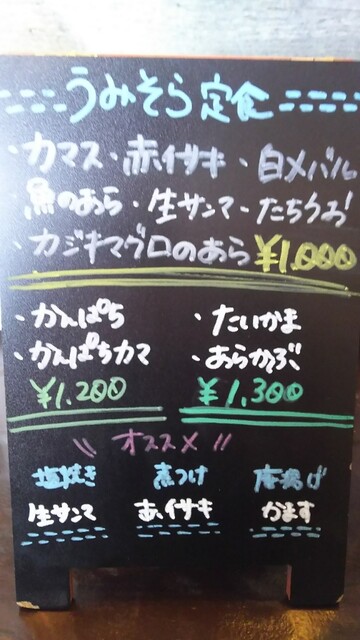 うみそら定食
・カマス・赤イサキ・白メバル
魚のあら・生サンマ・たちうお
・カジキマグロのあら ¥1,000
・かんぱち
・かんぱちカマ
¥1,200
・たいかま
・あらかぶ
¥1,300
\\ オススメ //
塩焼き 煮つけ 唐揚げ
生サンマ 赤イサキ かます